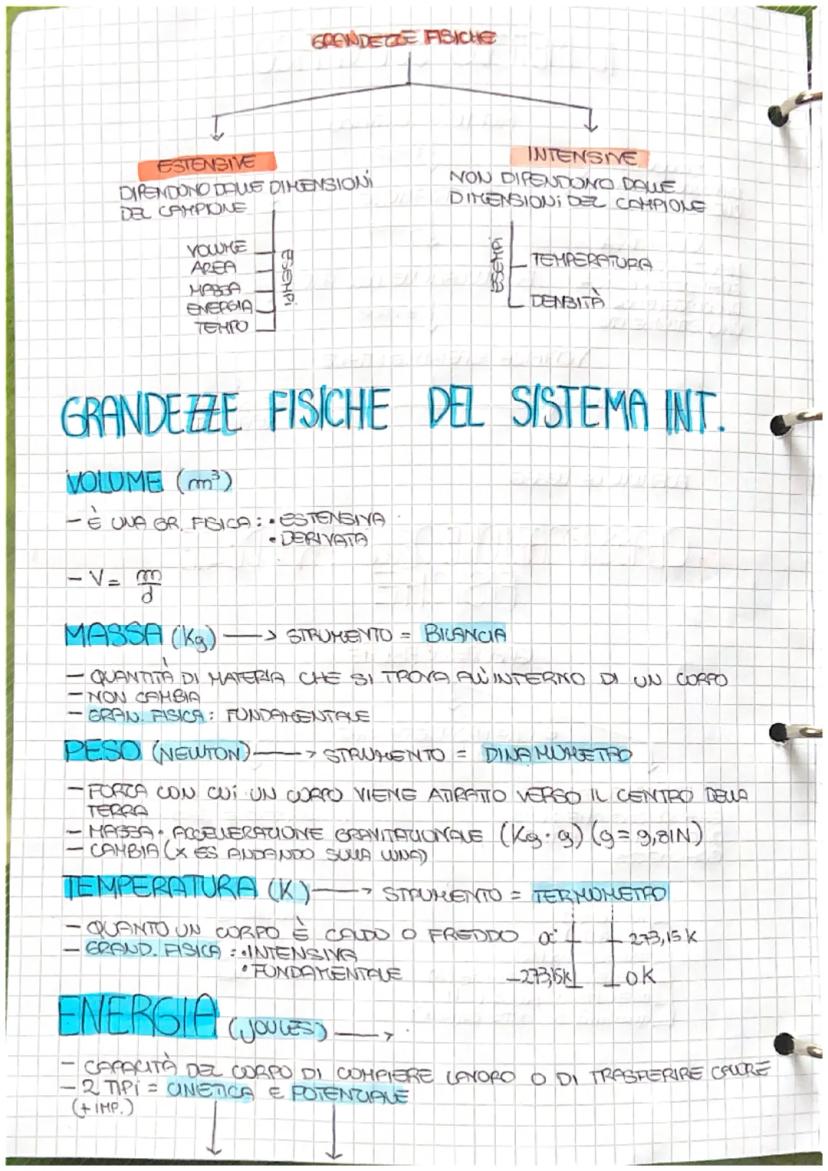 GRANDEZZE FISICHE
ESTENSIVE
DIPENDONO DALLE DIMENSIONI
DEL CAMPIONE
VOLUME
AREA
MASSA
ENERGIA
TEMPO
INTENSIVE
NON DIPENDONO DALLE
DIMENSIONI DEL CAMPIONE
TEMPERATURA
DENSITÀ
GRANDEZZE FISICHE DEL SISTEMA INT.
VOLUME (m³)
- È UNA GR. FISICA: • ESTENSIVA
• DERIVATA
- V = m/d
MASSA (Kg) → STRUMENTO = BILANCIA
- QUANTITÀ DI MATERIA CHE SI TROVA ALL'INTERNO DI UN CORPO
- NON CAMBIA
- GRAN. FISICA: FUNDAMENTALE
PESO (NEWTON) → STRUMENTO = DINAMOMETRO
- FORZA CON CUI UN CORPO VIENE ATTRATTO VERSO IL CENTRO DELLA
TERRA
- MASSA • ACCELERAZIONE GRAVITAZIONALE (Kg • g) (g = 9,81N)
- CAMBIA (X ES ANDANDO SULLA LUNA)
TEMPERATURA (K) → STRUMENTO = TERMOMETRO
- QUANTO UN CORPO È CALDO O FREDDO 273,15 K
- GRAND. FISICA: • INTENSIVA
• FUNDAMENTALE -273,15K 0K
ENERGIA (JOULES) →
- CAPACITÀ DEL CORPO DI COMPIERE LAVORO O DI TRASFERIRE CALORE
- 2 TIPI = CINETICA E POTENZIALE
(+ IMP.)